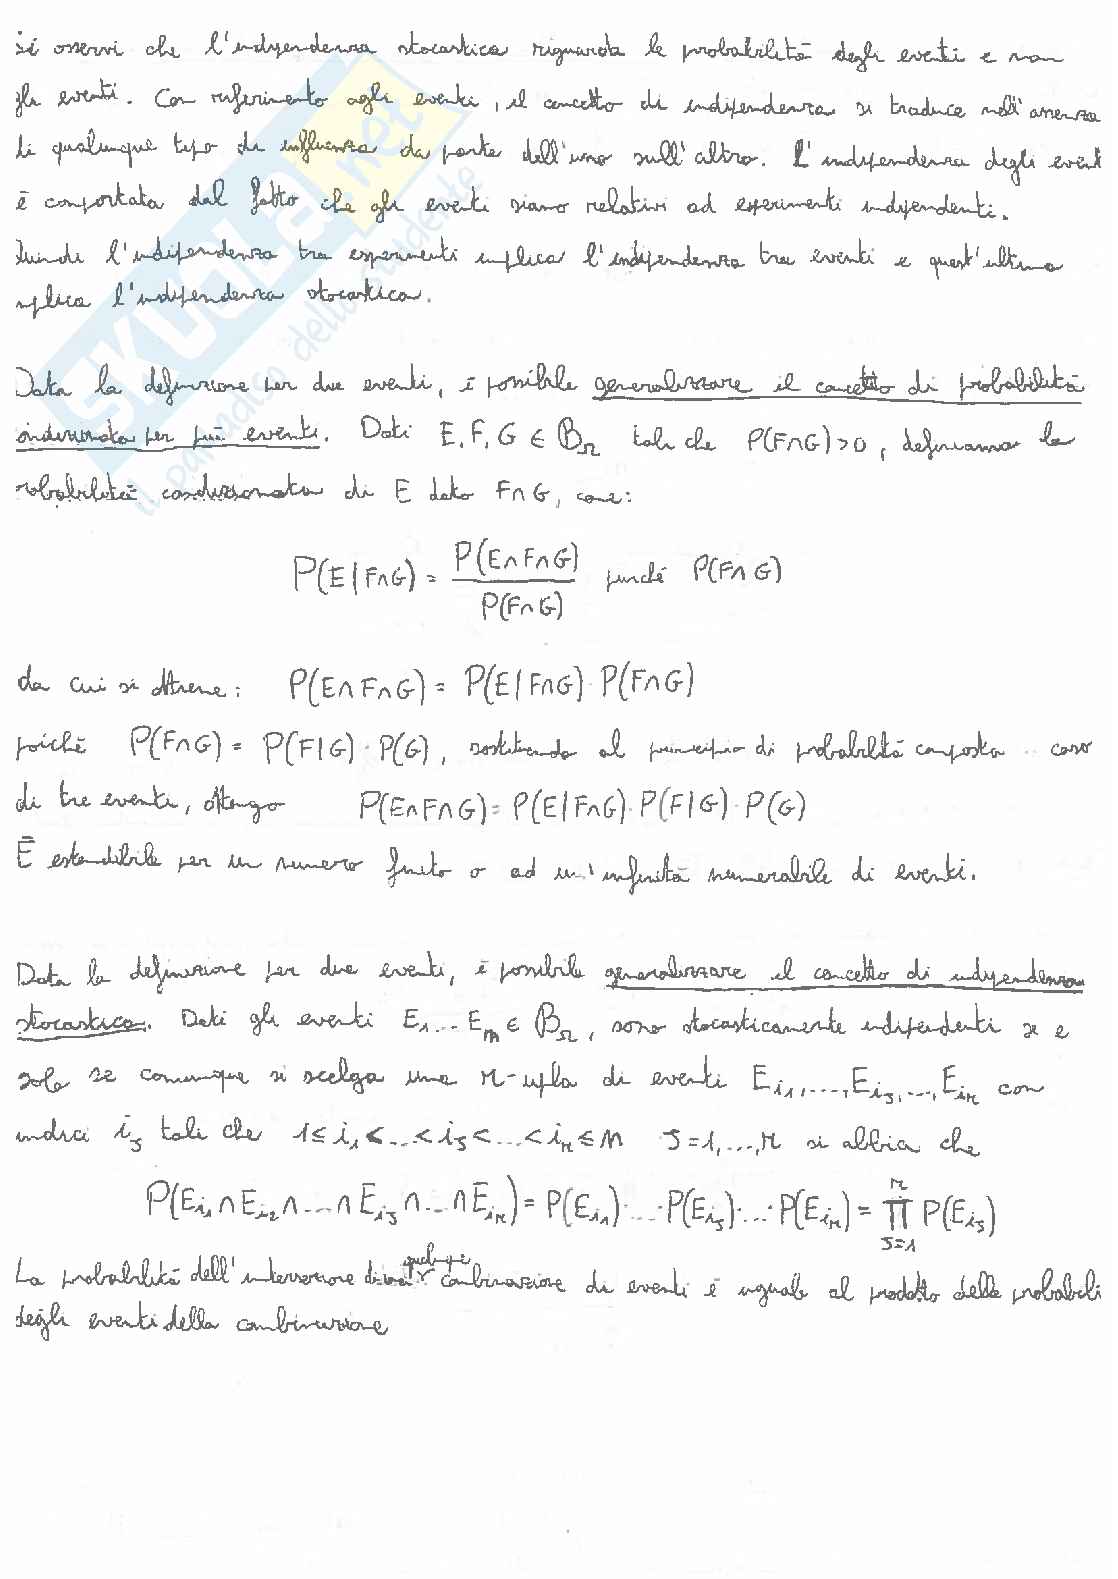 Si osservi che l'indipendenza stocastica riguarda le probabilità degli eventi e non
gli eventi. Con riferimento agli eventi, il concetto di indipendenza si traduce nell'assenza
di qualunque tipo di influenza da parte dell'uno sull'altro. L'indipendenza degli event
è comportata dal fatto che gli eventi siano relativi ad esperimenti indipendenti.
Quindi l'indipendenza tra esperimenti implica l'indipendenza tra eventi e quest'ultima
mplica l'indipendenza stocastica.
Data la definizione per due eventi, è possibile generalizzare il concetto di probabilità
ondizionata per più eventi. Dati E, F, G ∈ B_Ω tali che P(F∩G)>0, definiamo la
robabilità condizionata di E dato F∩G, come:
P(E|F∩G) = P(E∩F∩G) / P(F∩G) purché P(F∩G)
da cui si ottiene: P(E∩F∩G) = P(E|F∩G) · P(F∩G)
poiché P(F∩G) = P(F|G) · P(G), sostituendo al principio di probabilità composta caso
di tre eventi, ottengo P(E∩F∩G) = P(E|F∩G) · P(F|G) · P(G)
È estendibile per un numero finito o ad un'infinità numerabile di eventi.
Data la definizione per due eventi, è possibile generalizzare il concetto di indipendenza
stocastica. Dati gli eventi E₁...Eₙ ∈ B_Ω, sono stocasticamente indipendenti se e
solo se comunque si scelga una r-upla di eventi E_i₁,...,E_is,...,E_ir con
indici i_s tali che 1≤i₁<...<i_s<...<i_r≤n s=1,...,r si abbia che
P(E_i₁∩E_i₂∩...∩E_is∩...∩E_ir) = P(E_i₁)·...·P(E_is)·...·P(E_ir) = ∏_{s=1}^{r} P(E_is)
La probabilità dell'intersezione di qualunque combinazione di eventi è uguale al prodotto delle probabili
degli eventi della combinazione
SKUOLA.net
il paradiso dello studente